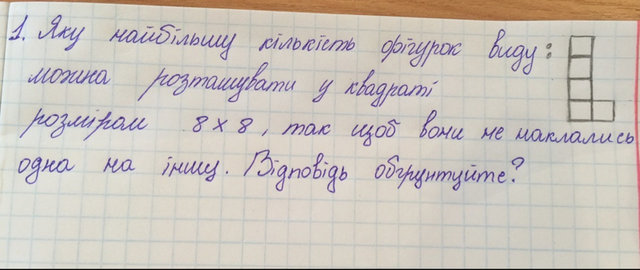 1. Яку найбільшу кількість фігурок виду:
можна розташувати у квадраті
розміром 8×8, так щоб вони не наклались
одна на іншу. Відповідь обґрунтуйте?